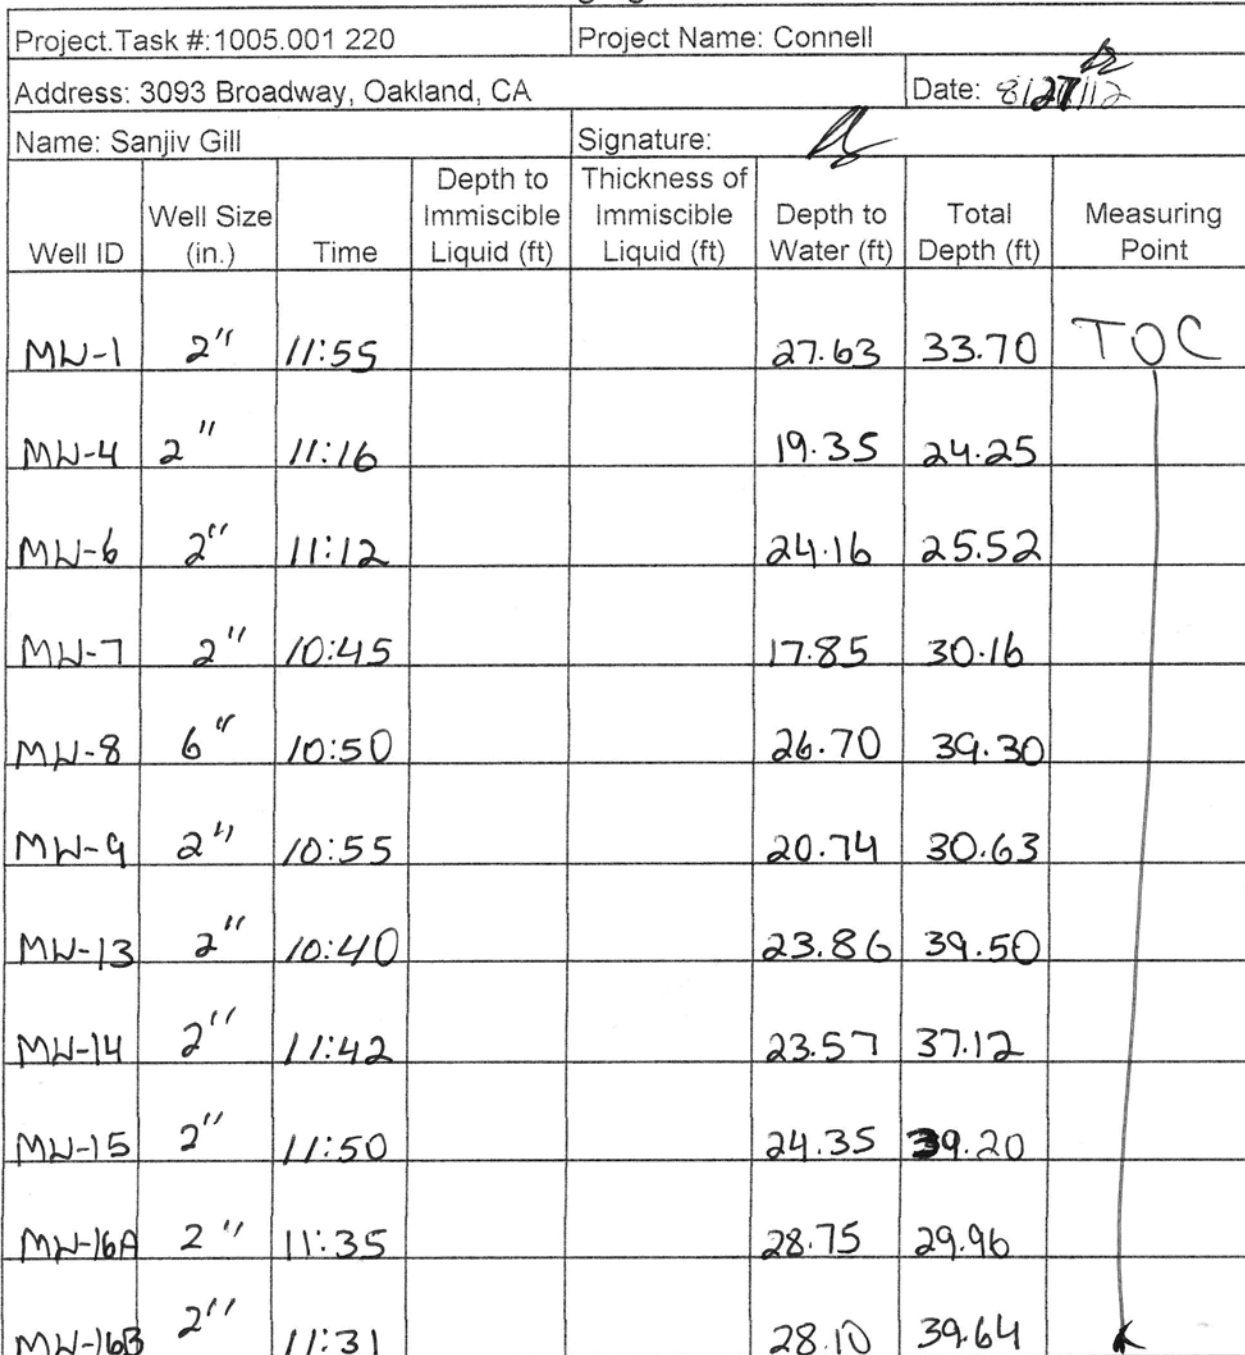 Project.Task #:1005.001 220 Project Name: Connell
Address: 3093 Broadway, Oakland, CA Date: 8/27/12
Name: Sanjiv Gill Signature:
Well ID Well Size (in.) Time Depth to Immiscible Liquid (ft) Thickness of Immiscible Liquid (ft) Depth to Water (ft) Total Depth (ft) Measuring Point
MW-1 2" 11:55 27.63 33.70 TOC
MW-4 2" 11:16 19.35 24.25
MW-6 2" 11:12 24.16 25.52
MW-7 2" 10:45 17.85 30.16
MW-8 6" 10:50 26.70 39.30
MW-9 2" 10:55 20.74 30.63
MW-13 2" 10:40 23.86 39.50
MW-14 2" 11:42 23.57 37.12
MW-15 2" 11:50 24.35 39.20
MW-16A 2" 11:35 28.75 29.96
MW-16B 2" 11:31 28.10 39.64